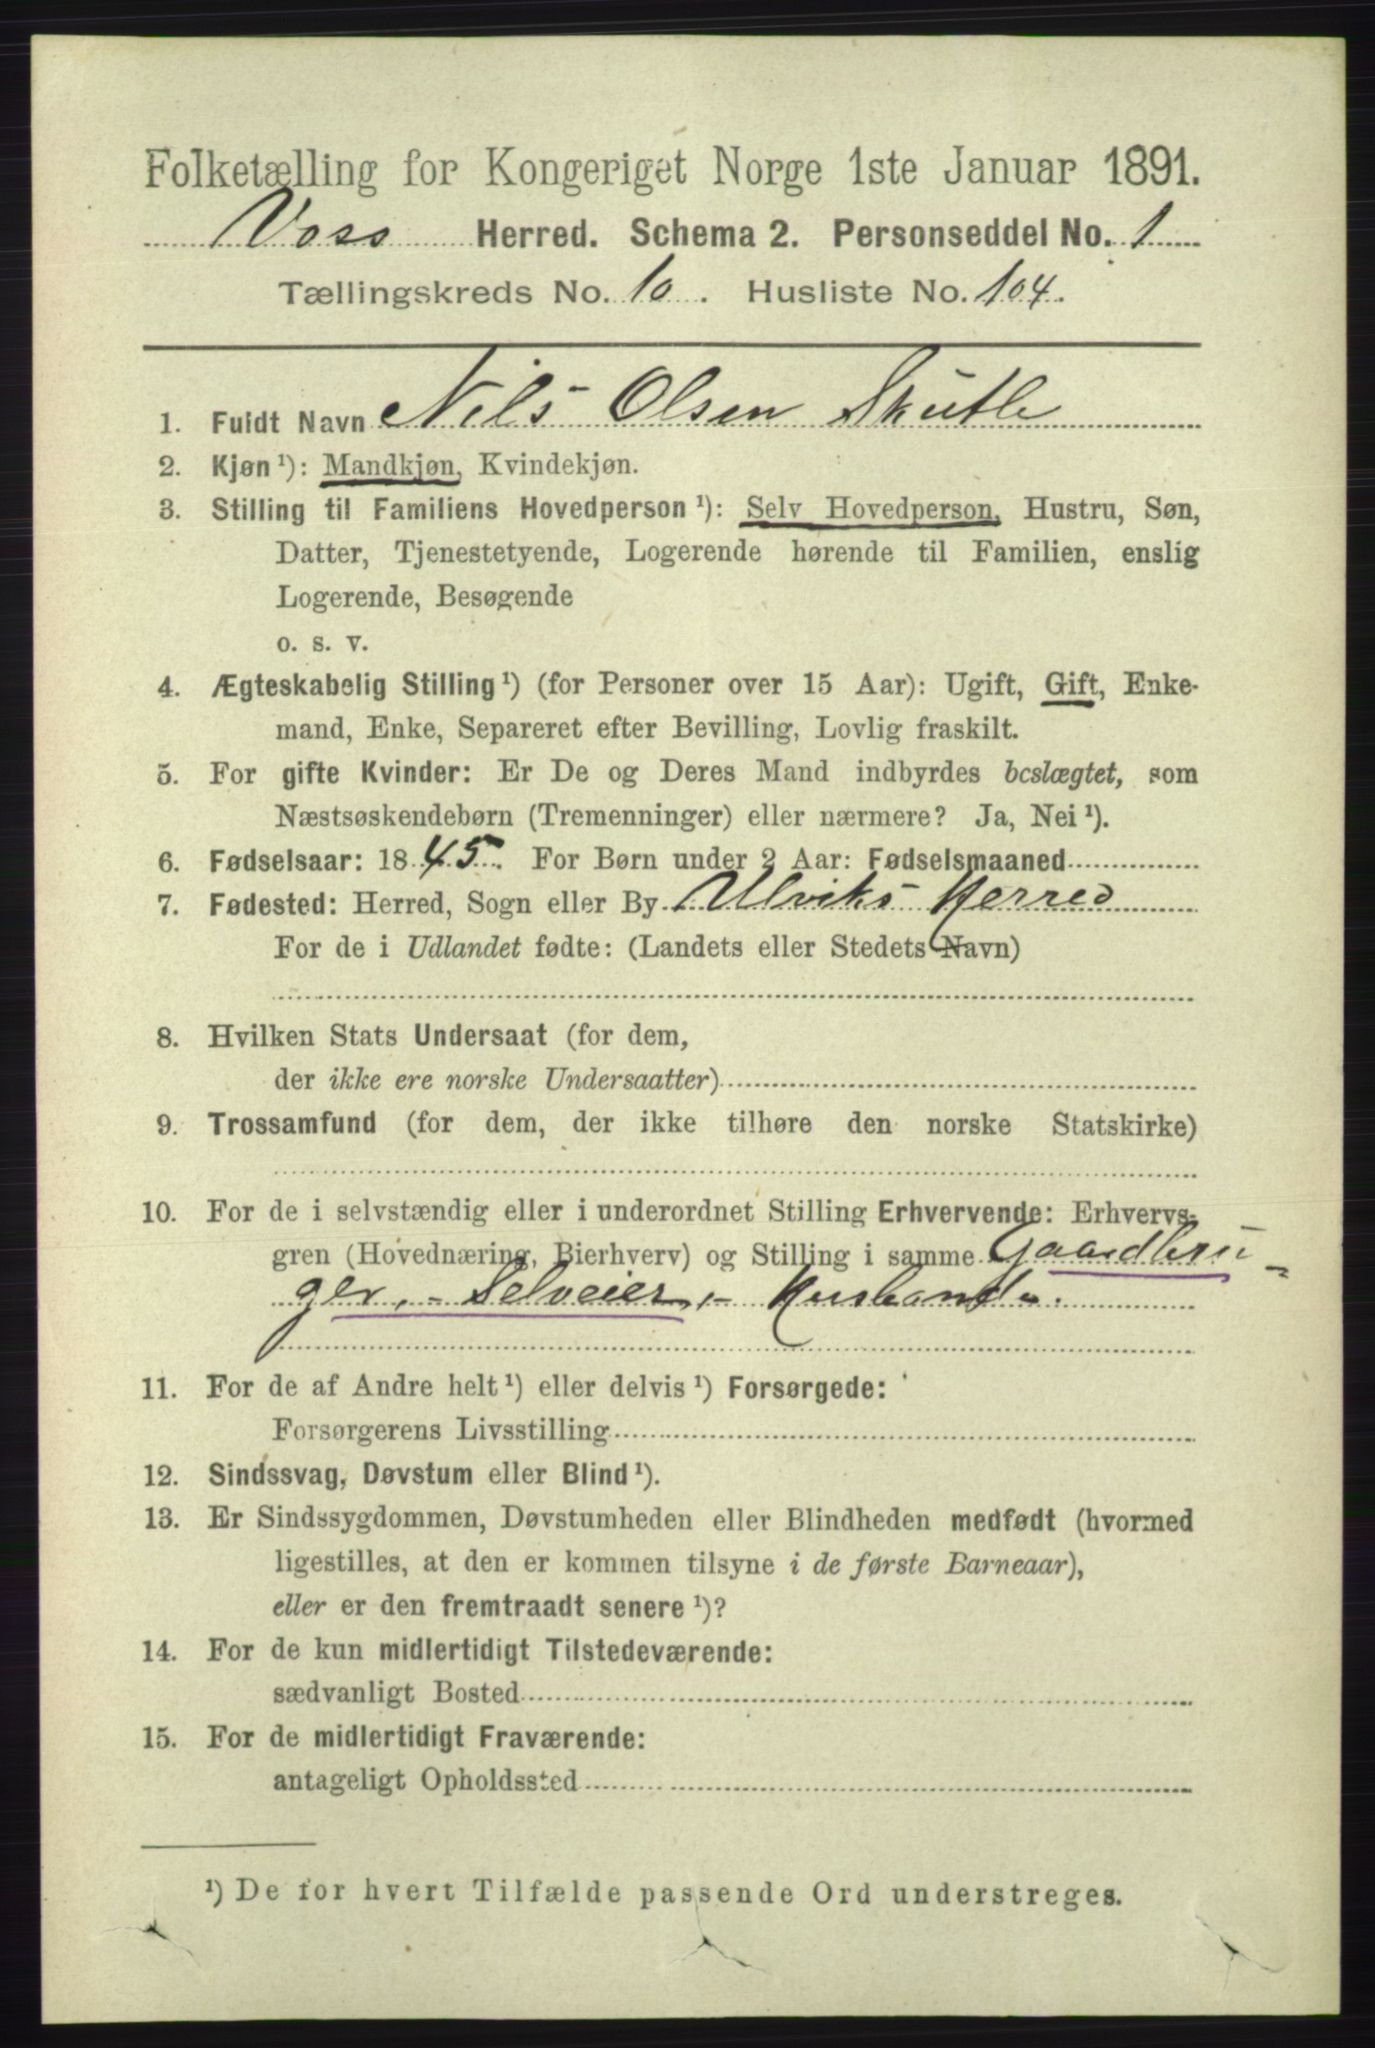 Folketælling for Kongeriget Norge 1ste Januar 1891.
Voss Herred. Schema 2. Personseddel No. 1
Tællingskreds No. 10. Husliste No. 104.
1. Fuldt Navn Nils Olsen Skutle
2. Kjøn ¹): Mandkjøn, Kvindekjøn.
3. Stilling til Familiens Hovedperson ¹): Selv Hovedperson, Hustru, Søn,
Datter, Tjenestetyende, Logerende hørende til Familien, enslig
Logerende, Besøgende
o. s. v.
4. Ægteskabelig Stilling ¹) (for Personer over 15 Aar): Ugift, Gift, Enke-
mand, Enke, Separeret efter Bevilling, Lovlig fraskilt.
5. For gifte Kvinder: Er De og Deres Mand indbyrdes beslægtet, som
Næstsøskendebørn (Tremenninger) eller nærmere? Ja, Nei ¹).
6. Fødselsaar: 1845. For Børn under 2 Aar: Fødselsmaaned
7. Fødested: Herred, Sogn eller By Ulviks Herred
For de i Udlandet fødte: (Landets eller Stedets Navn)
8. Hvilken Stats Undersaat (for dem,
der ikke ere norske Undersaatter)
9. Trossamfund (for dem, der ikke tilhøre den norske Statskirke)
10. For de i selvstændig eller i underordnet Stilling Erhvervende: Erhvervs-
gren (Hovednæring, Bierhverv) og Stilling i samme Gaardbru-
ger, - Selveier, -
11. For de af Andre helt ¹) eller delvis ¹) Forsørgede:
Forsørgerens Livsstilling
12. Sindssvag, Døvstum eller Blind ¹).
13. Er Sindssygdommen, Døvstumheden eller Blindheden medfødt (hvormed
ligestilles, at den er kommen tilsyne i de første Barneaar),
eller er den fremtraadt senere ¹)?
14. For de kun midlertidigt Tilstedeværende:
sædvanligt Bosted
15. For de midlertidigt Fraværende:
antageligt Opholdssted
¹) De for hvert Tilfælde passende Ord understreges.